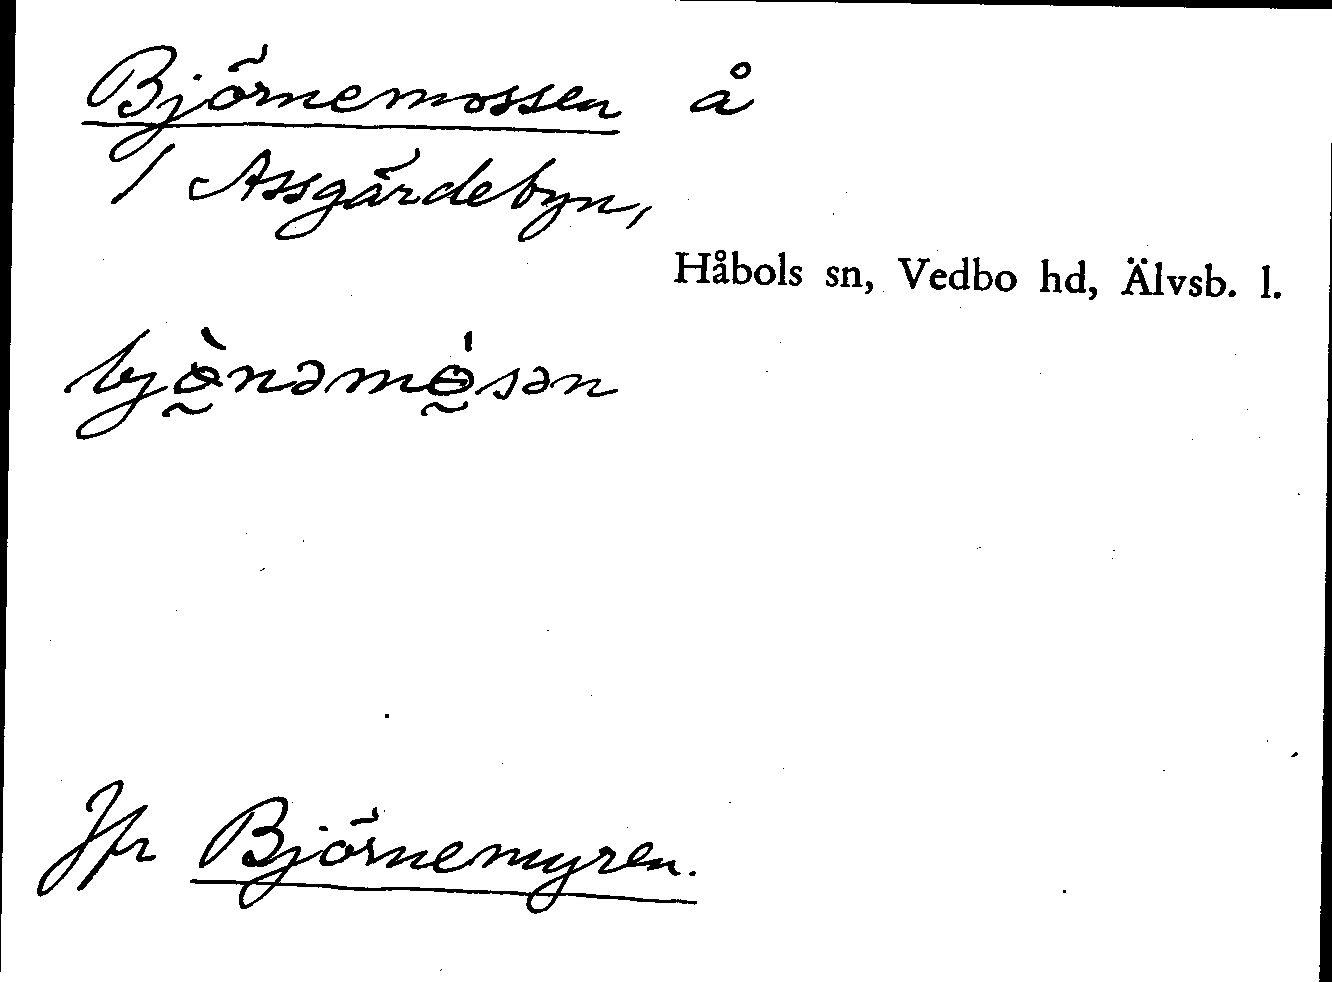 Björnemossen å
/ Assgärdebyn,
Håbols sn, Vedbo hd, Älvsb. l.
bjö̀nəmö́sən
Jfr Björnemyren.